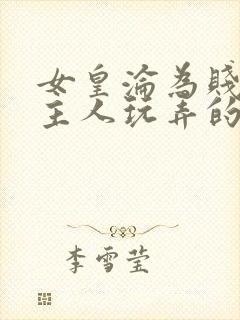 女皇淪為賤
主人玩弄的
李雪莹